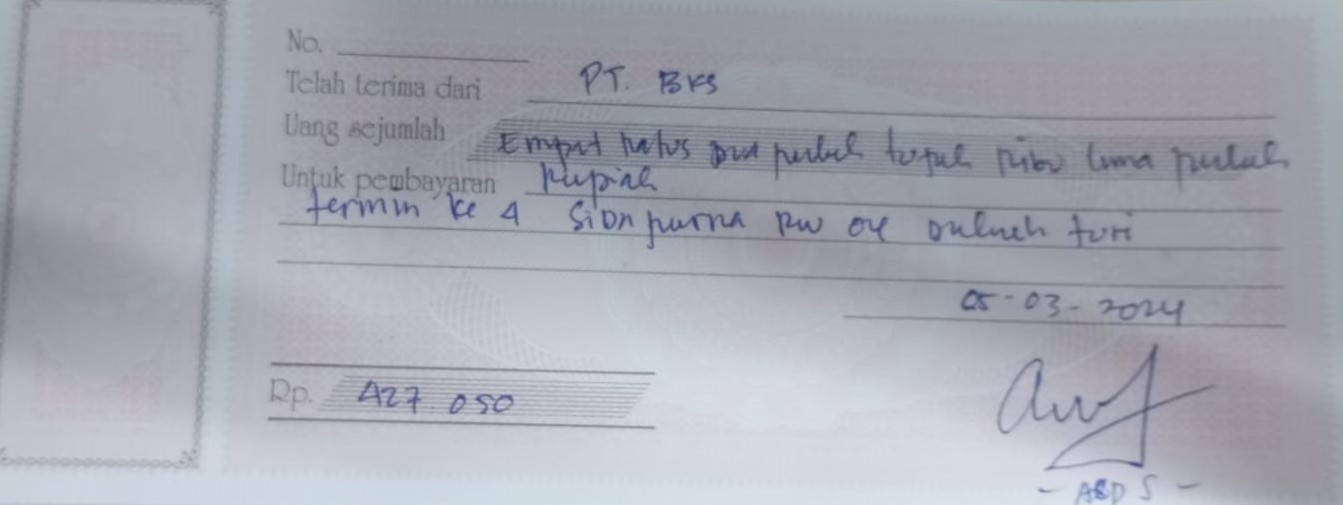 No.
Telah terima dari PT. BKS
Uang sejumlah Empat ratus dua puluh tujuh ribu lima puluh
Untuk pembayaran Rupiah
termin ke 4 Sion purna RW 04 turi
05-03-2024
Rp. 427.050
- ABD S -